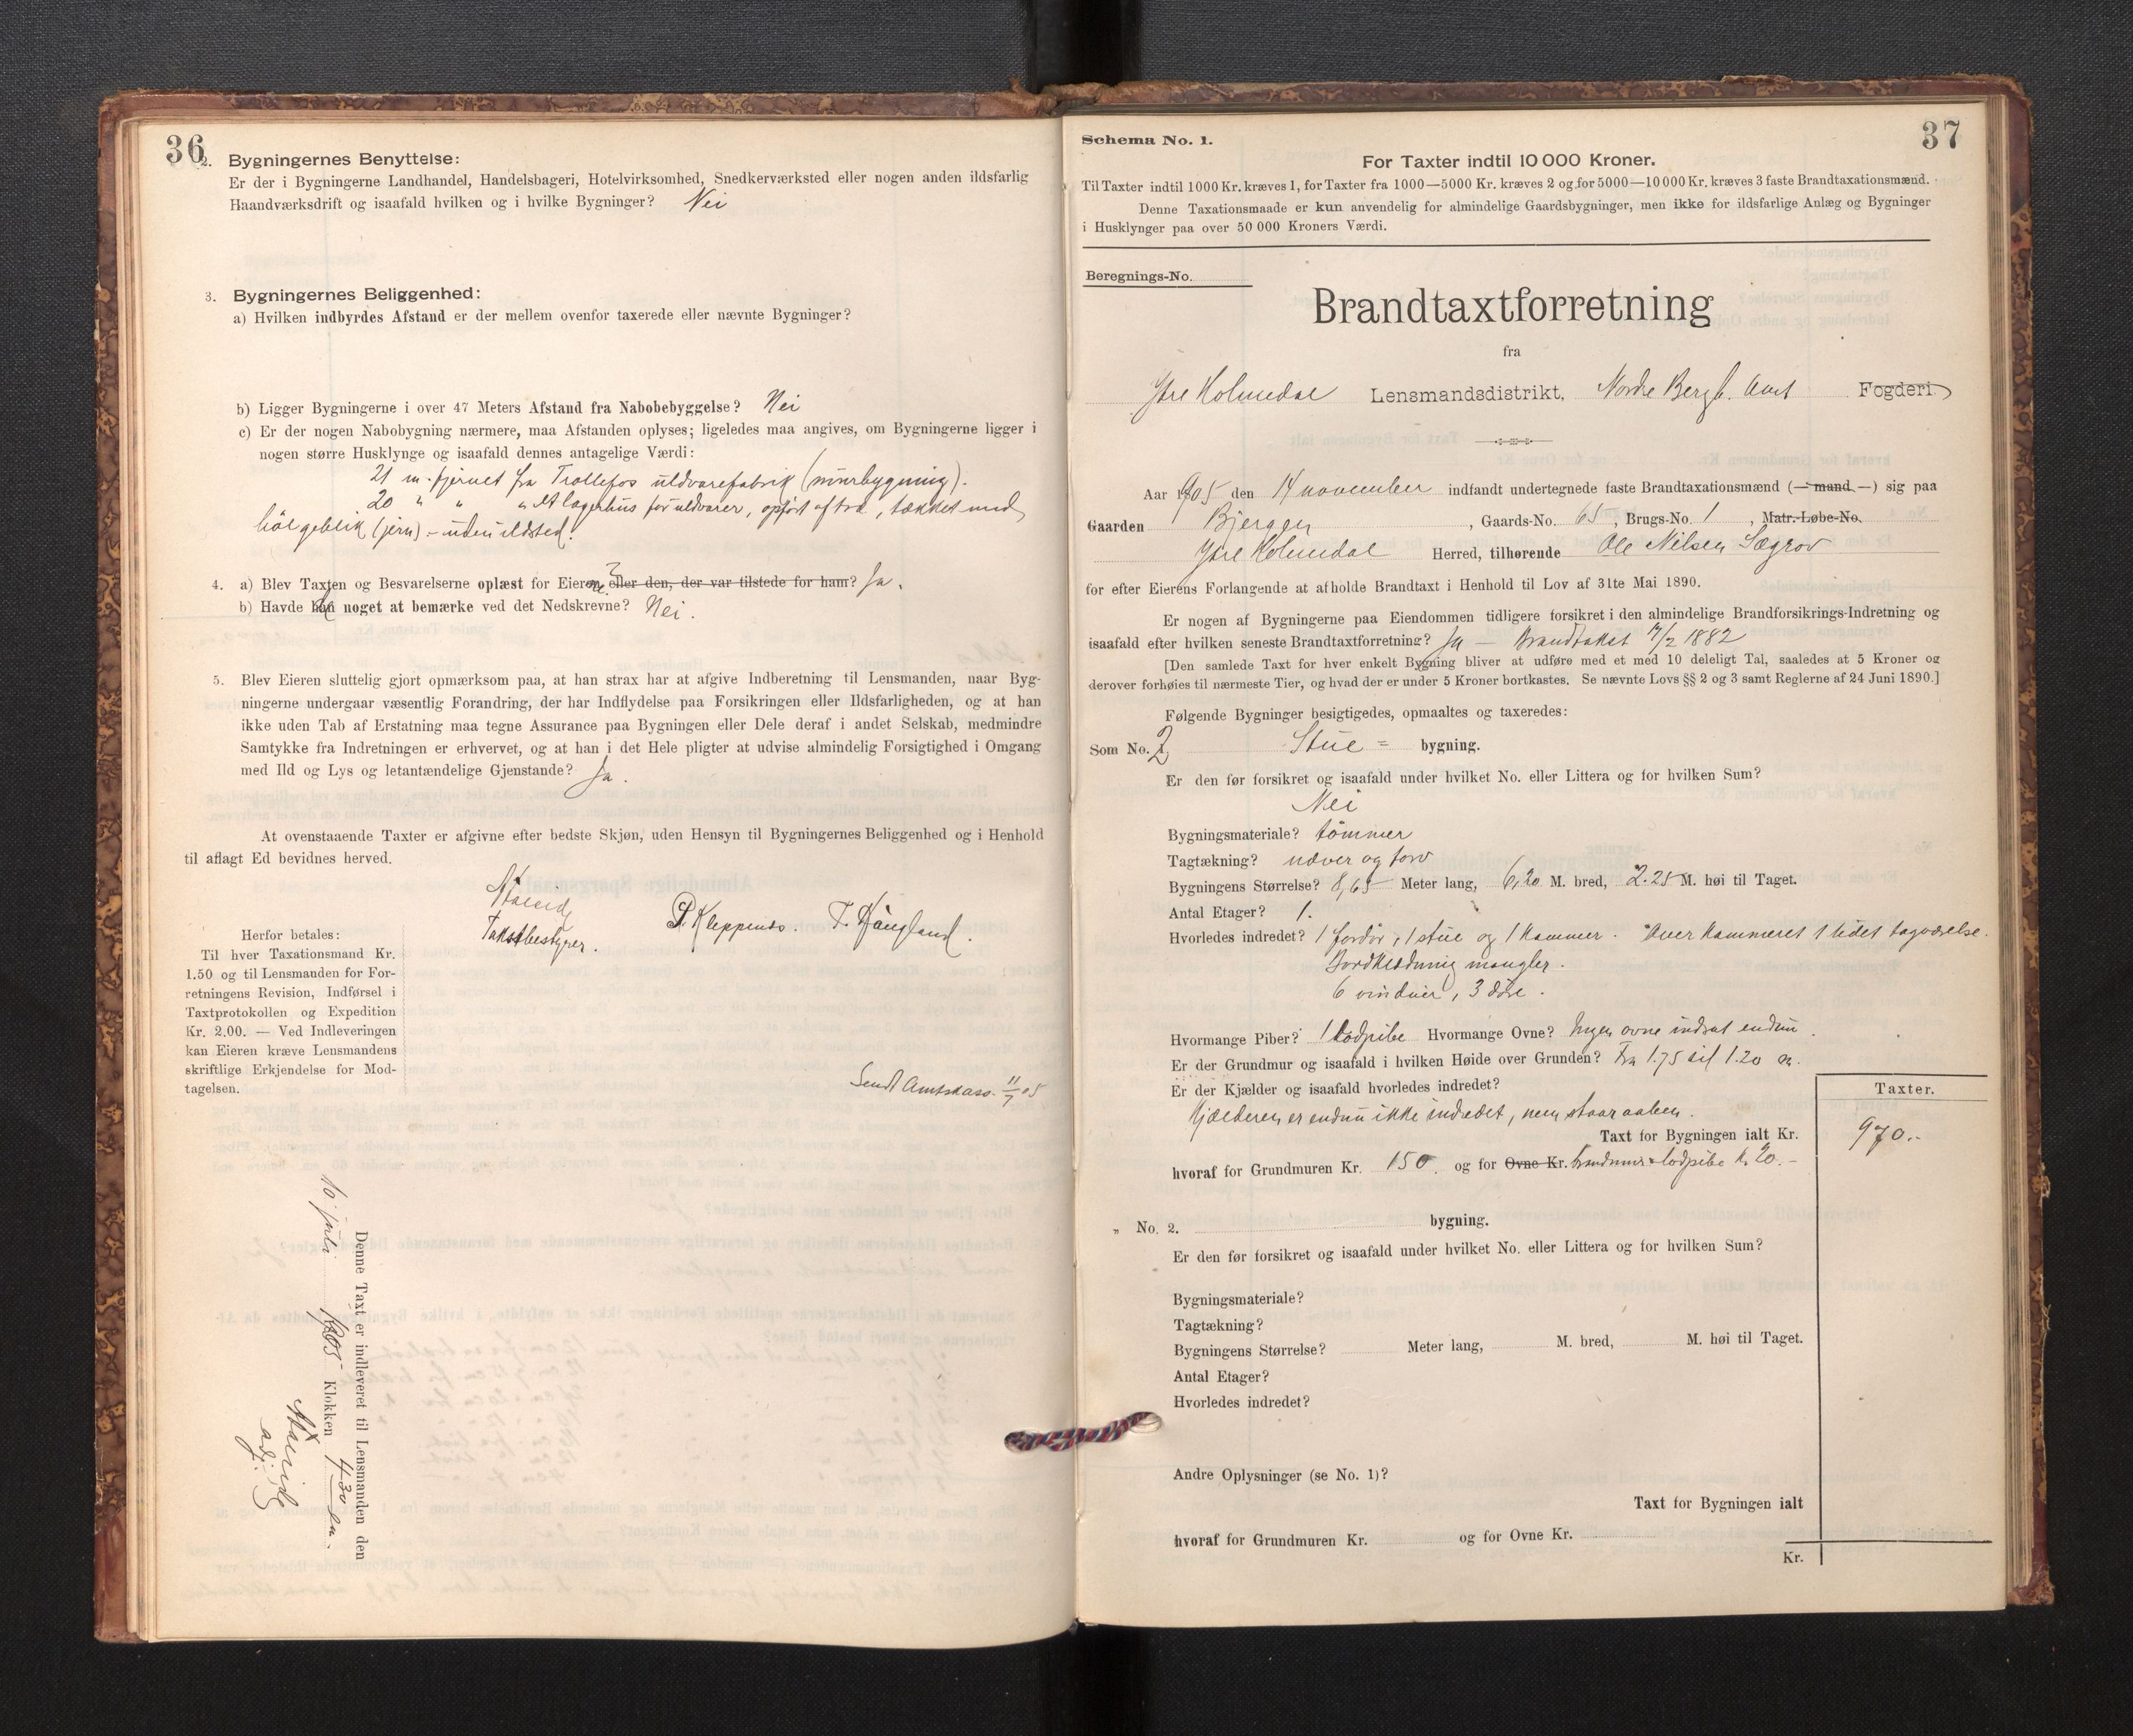 36
2. Bygningernes Benyttelse:
Er der i Bygningerne Landhandel, Handelsbageri, Hotelvirksomhed, Snedkerværksted eller nogen anden ildsfarlig
Haandværksdrift og isaafald hvilken og i hvilke Bygninger? Nei
3. Bygningernes Beliggenhed:
a) Hvilken indbyrdes Afstand er der mellem ovenfor taxerede eller nævnte Bygninger?
b) Ligger Bygningerne i over 47 Meters Afstand fra Nabobebyggelse? Nei
c) Er der nogen Nabobygning nærmere, maa Afstanden oplyses; ligeledes maa angives, om Bygningerne ligger i
nogen større Husklynge og isaafald dennes antagelige Værdi:
21 m. fjernet fra Trollefos uldvarefabrik (murbygning).
20 " " " et lagerhus for uldvarer, opført af træ, tækket med
bølgeblik (jern) - uden ildsted.
4. a) Blev Taxten og Besvarelserne oplæst for Eierne? eller den, der var tilstede for ham? Ja.
b) Havde de noget at bemærke ved det Nedskrevne? Nei.
5. Blev Eieren sluttelig gjort opmærksom paa, at han strax har at afgive Indberetning til Lensmanden, naar Byg-
ningerne undergaar væsentlig Forandring, der har Indflydelse paa Forsikringen eller Ildsfarligheden, og at han
ikke uden Tab af Erstatning maa tegne Assurance paa Bygningen eller Dele deraf i andet Selskab, medmindre
Samtykke fra Indretningen er erhvervet, og at han i det Hele pligter at udvise almindelig Forsigtighed i Omgang
med Ild og Lys og letantændelige Gjenstande? Ja.
At ovenstaaende Taxter er afgivne efter bedste Skjøn, uden Hensyn til Bygningernes Beliggenhed og i Henhold
til aflagt Ed bevidnes herved.
Takstbestyrer. P. Kleppenes. T. Haugland.
Herfor betales:
Til hver Taxationsmand Kr.
1.50 og til Lensmanden for For-
retningens Revision, Indførsel i
Taxtprotokollen og Expedition
Kr. 2.00. — Ved Indleveringen
kan Eieren kræve Lensmandens
skriftlige Erkjendelse for Mod-
tagelsen.
Sendt Amtskass. 11/7 05
Denne Taxt er indleveret til Lensmanden den
10 juli 1905 Klokken 4 30 em.
37
Schema No. 1.
For Taxter indtil 10 000 Kroner.
Til Taxter indtil 1000 Kr. kræves 1, for Taxter fra 1000—5000 Kr. kræves 2 og for 5000—10 000 Kr. kræves 3 faste Brandtaxationsmænd.
Denne Taxationsmaade er kun anvendelig for almindelige Gaardsbygninger, men ikke for ildsfarlige Anlæg og Bygninger
i Husklynger paa over 50 000 Kroners Værdi.
Beregnings-No.
Brandtaxtforretning
fra
Ytre Holmedal Lensmandsdistrikt, Nordre Bergh. Amt Fogderi
Aar 1905 den 14 november indfandt undertegnede faste Brandtaxationsmænd (— mand —) sig paa
Gaarden Bjergen, Gaards-No. 65, Brugs-No. 1, Matr.-Løbe-No.
Ytre Holmedal Herred, tilhørende Ole Nilsen Sægrov
for efter Eierens Forlangende at afholde Brandtaxt i Henhold til Lov af 31te Mai 1890.
Er nogen af Bygningerne paa Eiendommen tidligere forsikret i den almindelige Brandforsikrings-Indretning og
isaafald efter hvilken seneste Brandtaxtforretning? Ja — Brandtakst 7/2 1882
[Den samlede Taxt for hver enkelt Bygning bliver at udføre med et med 10 deleligt Tal, saaledes at 5 Kroner og
derover forhøies til nærmeste Tier, og hvad der er under 5 Kroner bortkastes. Se nævnte Lovs §§ 2 og 3 samt Reglerne af 24 Juni 1890.]
Følgende Bygninger besigtigedes, opmaaltes og taxeredes:
Som No. 2 Stue = bygning.
Er den før forsikret og isaafald under hvilket No. eller Littera og for hvilken Sum?
Nei
Bygningsmateriale? tømmer
Tagtækning? næver og torv
Bygningens Størrelse? 8,65 Meter lang, 6,20 M. bred, 2.25 M. høi til Taget.
Antal Etager? 1.
Hvorledes indredet? 1 fordør, 1 stue og 1 kammer. Over kammeret 1 lidet tagværelse.
Bordklædning mangler.
6 vinduer, 3 døre.
Hvormange Piber? 1 lodpibe Hvormange Ovne? Ingen ovne indsat endnu.
Er der Grundmur og isaafald i hvilken Høide over Grunden? Fra 1.75 til 1.20 m.
Er der Kjælder og isaafald hvorledes indredet?
Kjælderen er endnu ikke indredet, men staar aaben.
Taxter.
Taxt for Bygningen ialt Kr. 970.-
hvoraf for Grundmuren Kr. 150. og for Ovne Kr. brandmur & lodpibe k. 20.-
" No. 2. bygning.
Er den før forsikret og isaafald under hvilket No. eller Littera og for hvilken Sum?
Bygningsmateriale?
Tagtækning?
Bygningens Størrelse? Meter lang, M. bred, M. høi til Taget.
Antal Etager?
Hvorledes indredet?
Andre Oplysninger (se No. 1)?
Taxt for Bygningen ialt
hvoraf for Grundmuren Kr. og for Ovne Kr.
Kr.